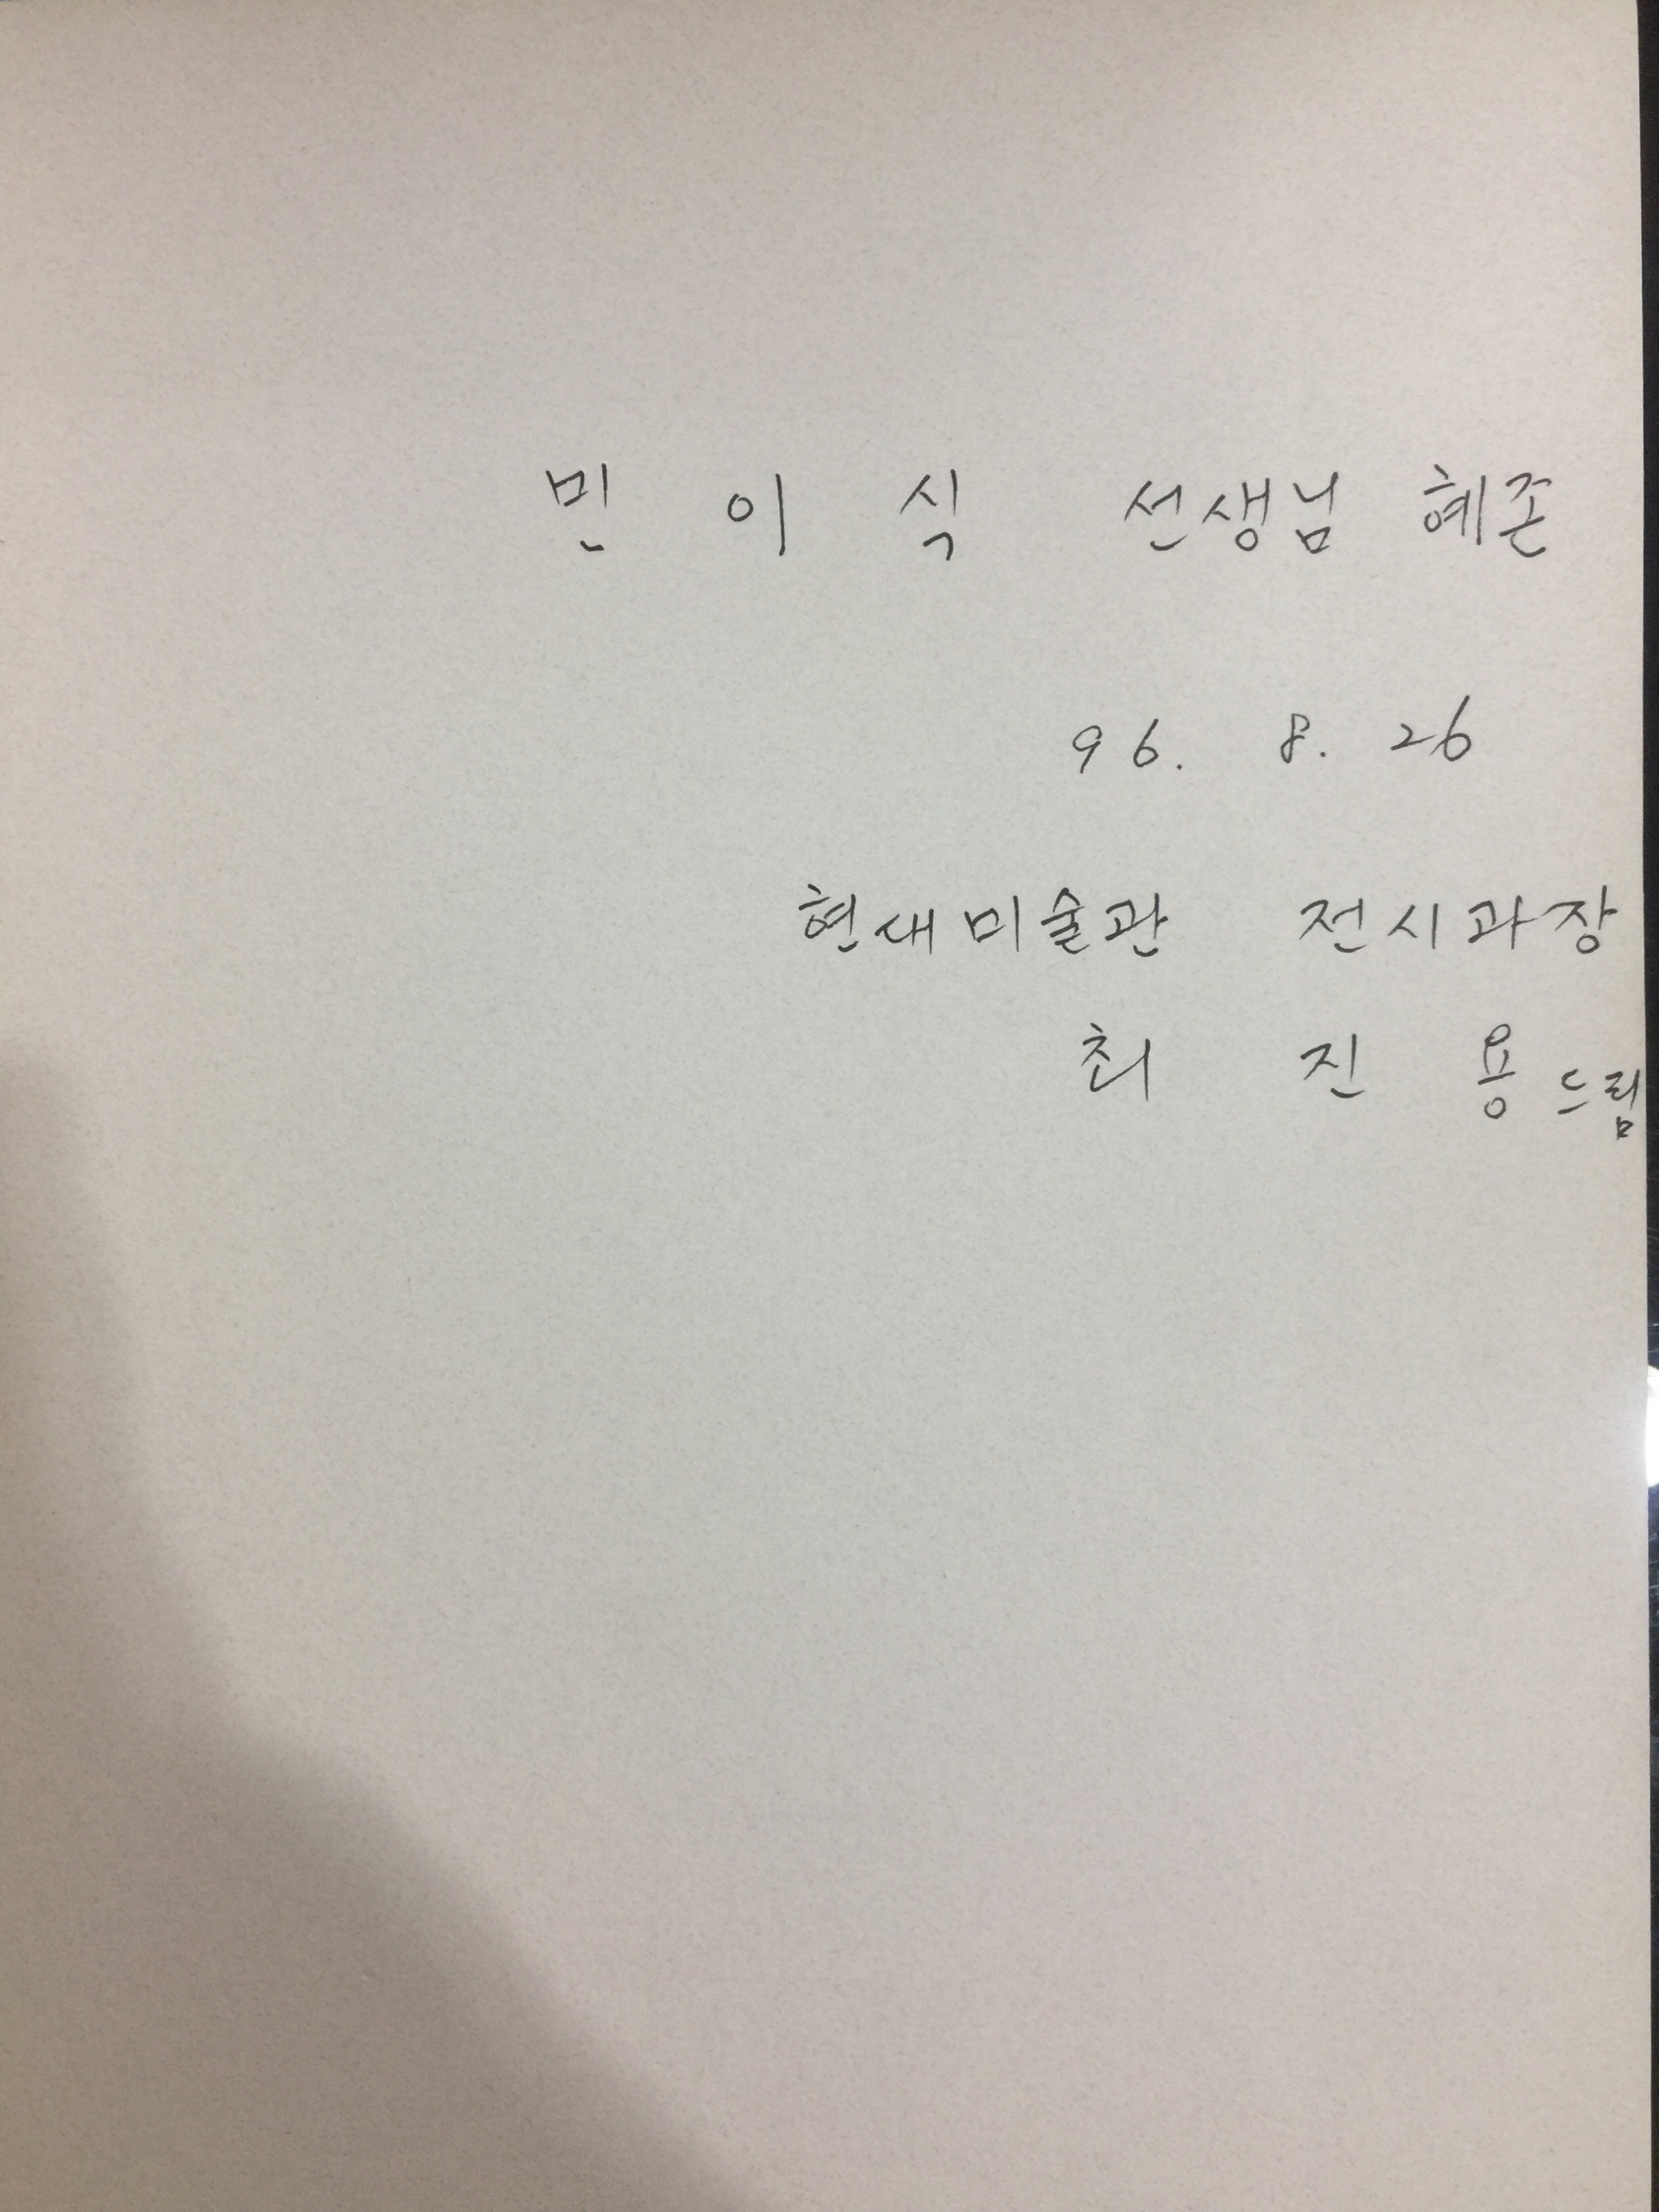 민 이 식 선생님 혜존
96. 8. 26
현대미술관 전시과장
최 진 용 드림